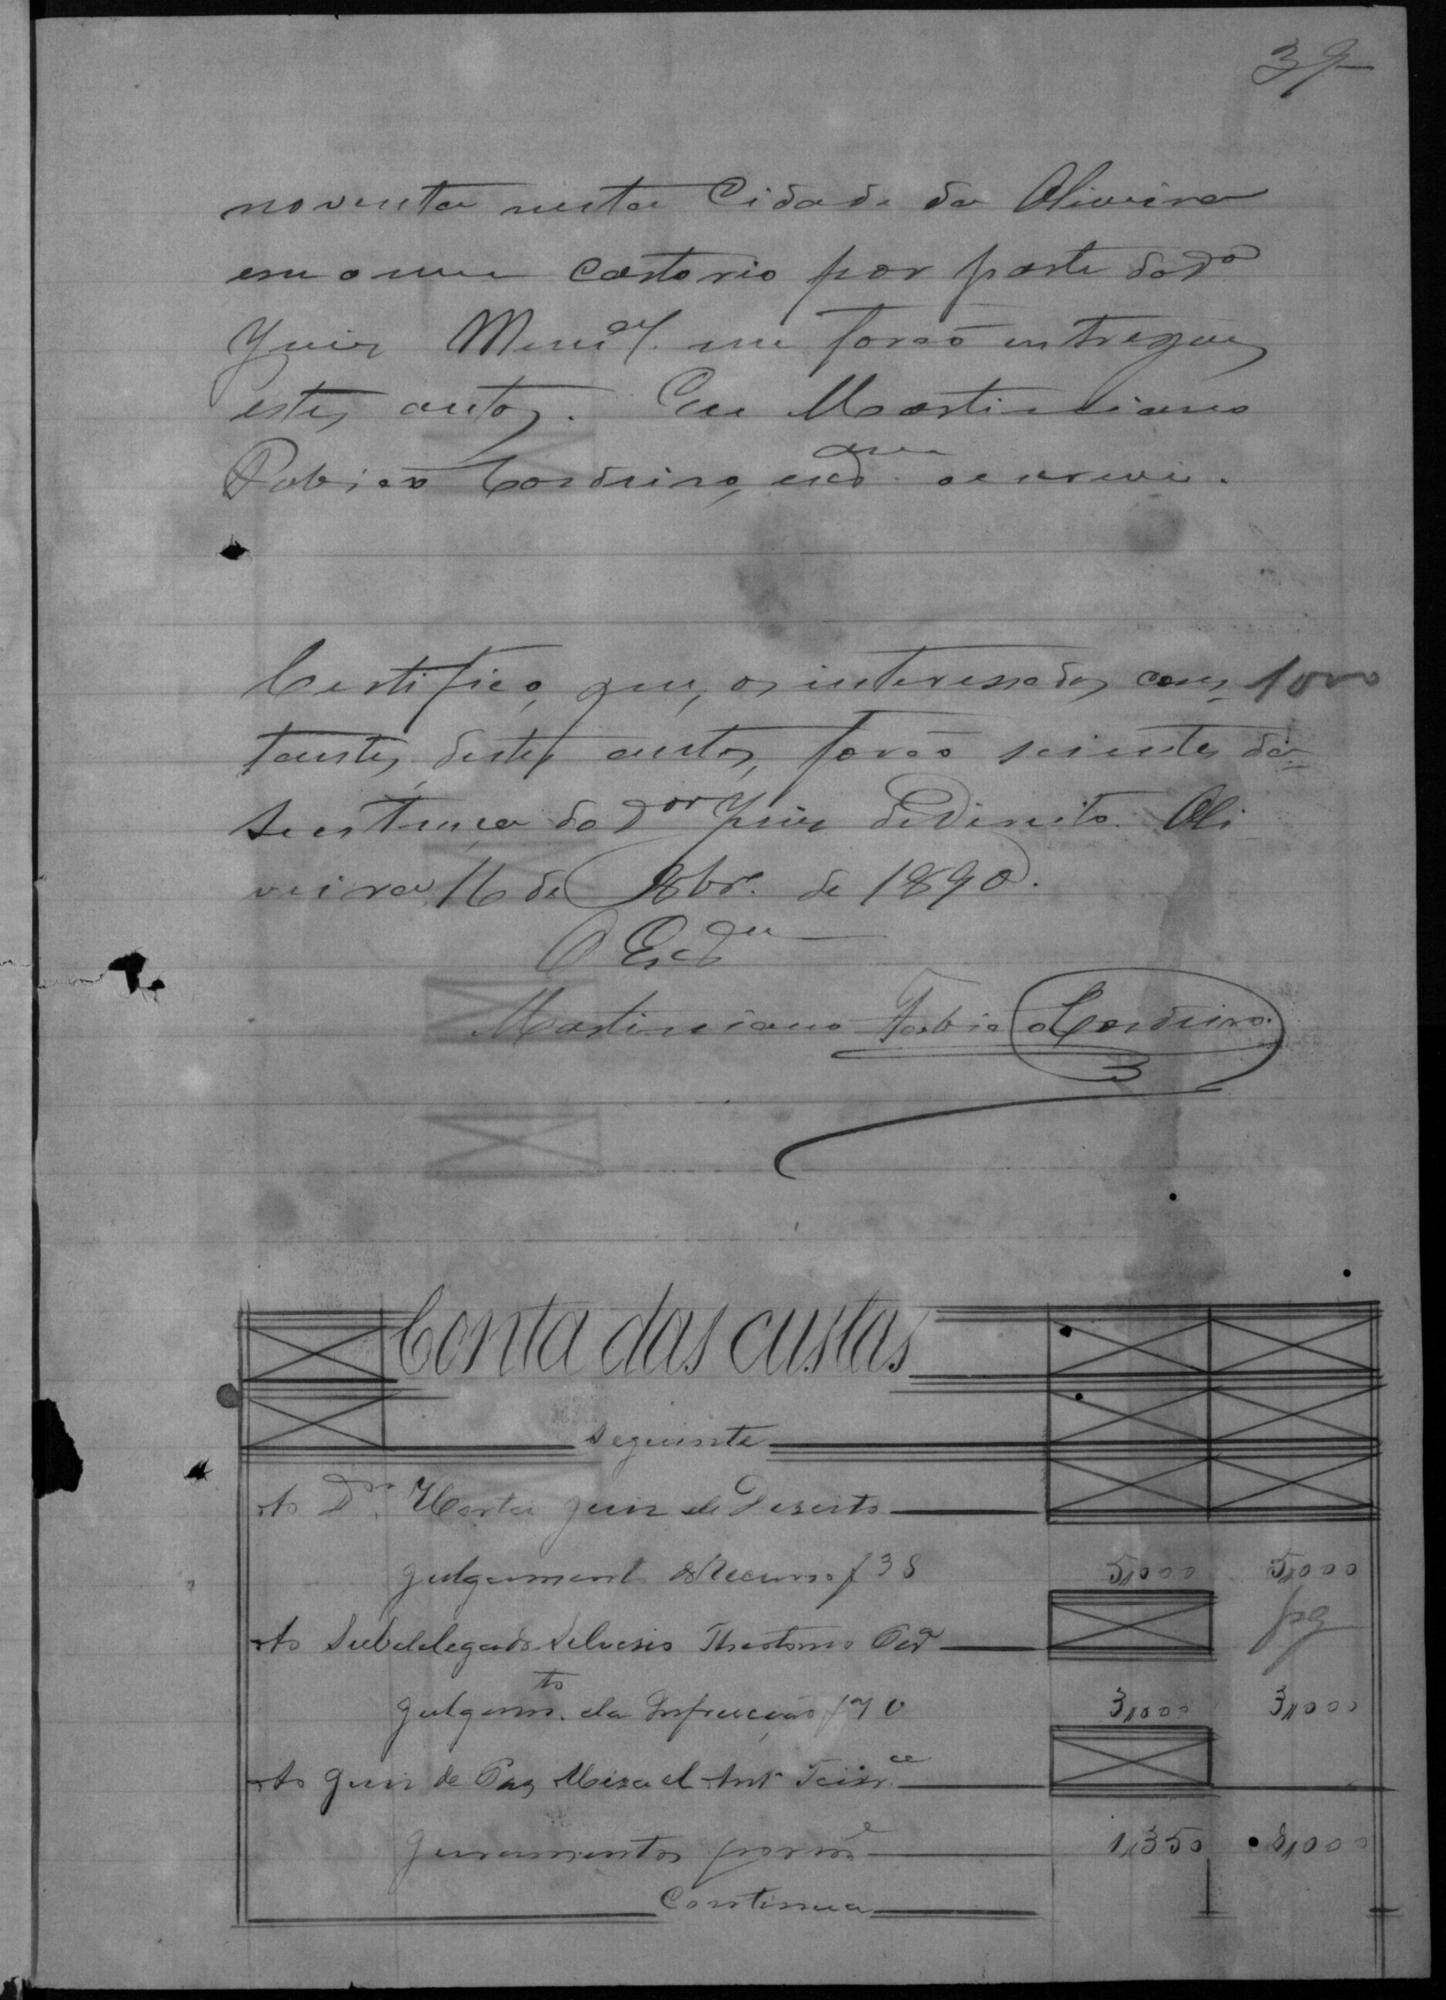 39
noventa nesta Cidade da Oliveira
em o meu Cartorio por parte do D.º
Juiz Mun.al me forão entregues
estes autos. Eu Martiniano
Fabiao Cordeiro, escam. o escrevi.
Certifico, que, os interessados cons, 1000
tantes, destes autos, forão scientes da
sentença do Dor Juiz de Direito. Oli
veira, 16 de 8br.º de 1890.
O Escam
Martiniano Fabiao Cordeiro.
Conta das custas
Seguinte
Ao Dr. Horta Juiz de Direito
julgament do Recurso f 38 5,000 5,000
pg
Ao Subdelegado Silverio Theotonio
Julgam.to da Infracção f 3,000 3,000
Ao Juiz de Paz Misael Ant.º Teixr.a
Juramentos 1,350 8,000
Continua